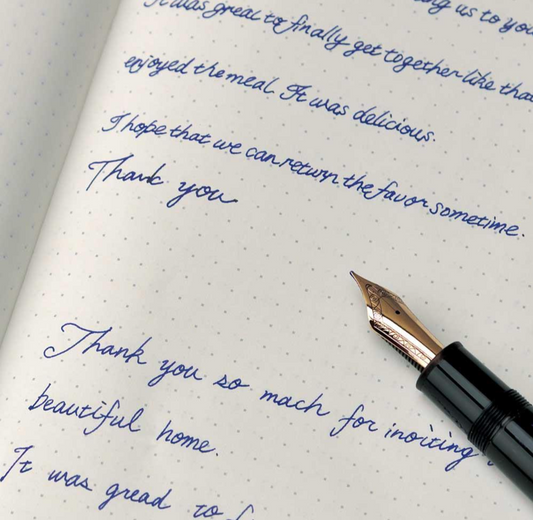 us to you
It was great to finally get together like that
enjoyed the meal. It was delicious.
I hope that we can return the favor sometime.
Thank you
Thank you so mach for inoiting
beautiful home.
It was gread to f